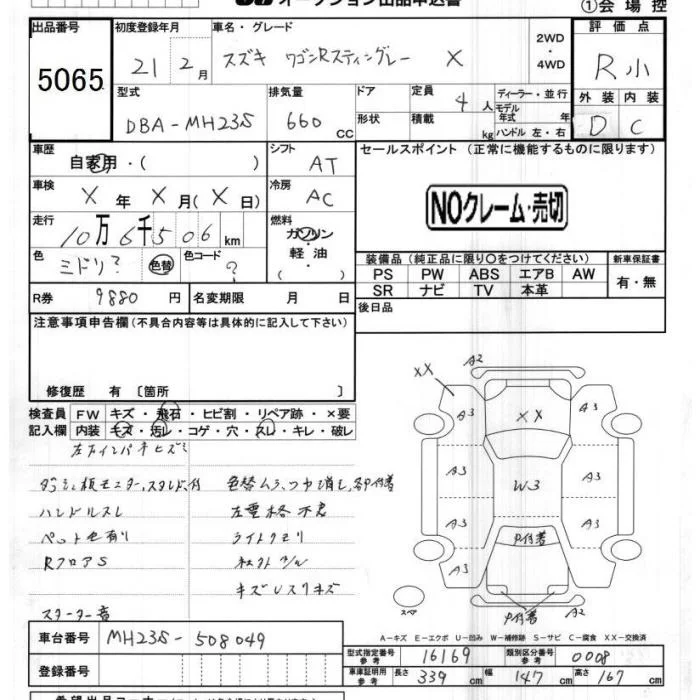 オークション出品申込書
①会場控
出品番号
5065
初度登録年月
21 2月
車名・グレード
スズキ ワゴンRスティングレー X
2WD
・
4WD
評価点
R小
外装 内装
D C
型式
DBA-MH23S
排気量
660 CC
ドア
形状
定員
4人
積載
kg
ディーラー・並行
モデル
年式 年
ハンドル 左・右
車歴
自家用・( )
シフト
AT
セールスポイント (正常に機能するものに限ります)
NOクレーム・売切
車検
X年X月(X日)
冷房
AC
走行
10万6千506km
燃料
ガソリン
・
軽油
( ・ )
色
ミドリ?
色替
色コード
?
装備品(純正品に限り○をつけてください)
PS PW ABS エアB AW
SR ナビ TV 本革
新車保証書
有・無
R券
9880円
名変期限 月 日
後日品
注意事項申告欄(不具合内容等は具体的に記入して下さい)
修復歴 有 〔箇所 〕
検査員
記入欄
FW キズ・飛石・ヒビ割・リペア跡・×要
内装 キズ・汚レ・コゲ・穴・スレ・キレ・破レ
左右インパネヒズミ
ダッシュ板モニター、スタンド付
色替ムラ、ツヤ消し、各P付着
ハンドルスレ
ペット毛有り
ライトクモリ
RフロアS
キズUスリキズ
スターター音
XX
A2
A3
A3
XX
A3
A3
W3
A3
A3
P付着
A3
A3
スペア
P付着
A2
A-キズ E-エクボ U-凹み W-補修跡 S-サビ C-腐食 XX-交換済
車台番号
MH23S-508049
型式指定番号
参考
16169
類別区分番号
参考
0008
登録番号
車庫証明用
参考
長さ 339cm
幅 147cm
高さ 167cm